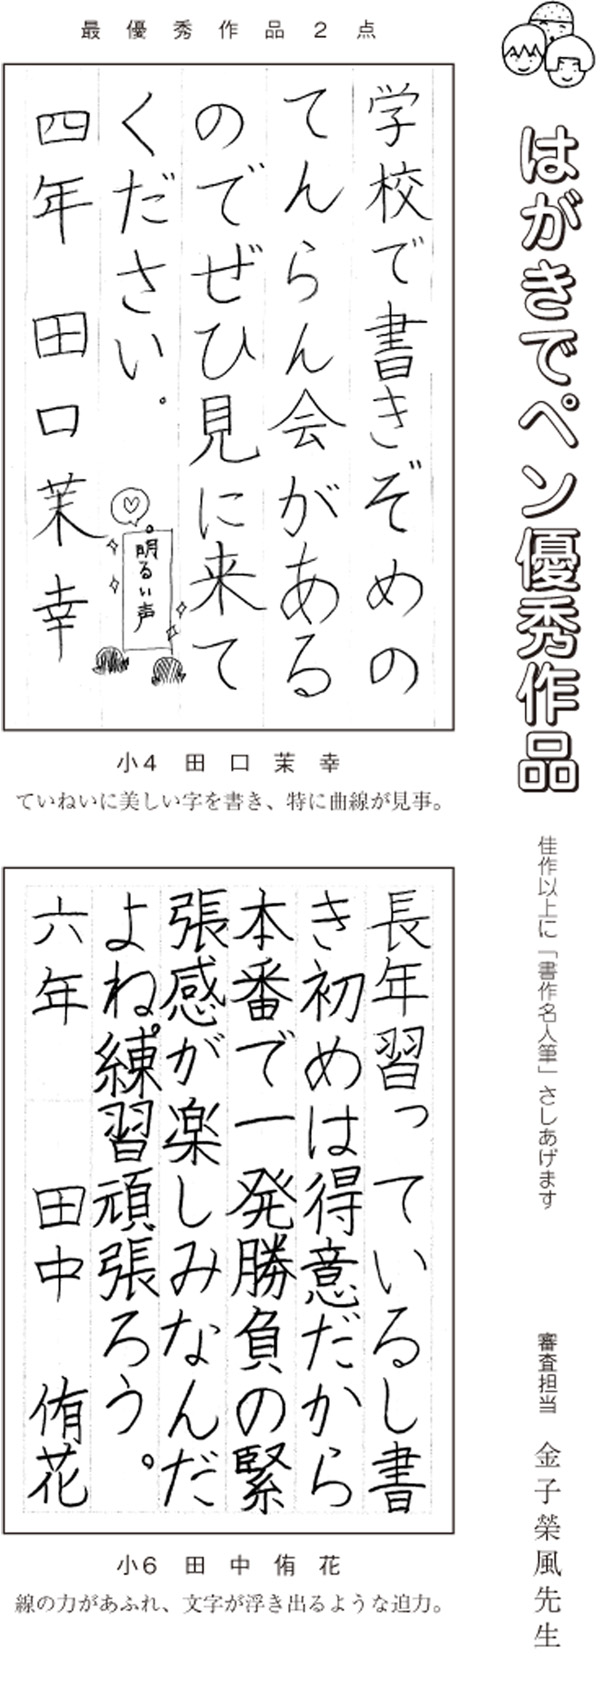 はがきでペン優秀作品
佳作以上に「書作名人筆」さしあげます
審査担当 金子榮風先生
最優秀作品2点
学校で書きぞめの
てんらん会がある
のでぜひ見に来て
ください。
明るい声
四年 田口茉幸
小4 田口茉幸
ていねいに美しい字を書き、特に曲線が見事。
長年習っているし書
き初めは得意だから
本番で一発勝負の緊
張感が楽しみなんだ
よね。練習頑張ろう。
六年 田中侑花
小6 田中侑花
線の力があふれ、文字が浮き出るような迫力。